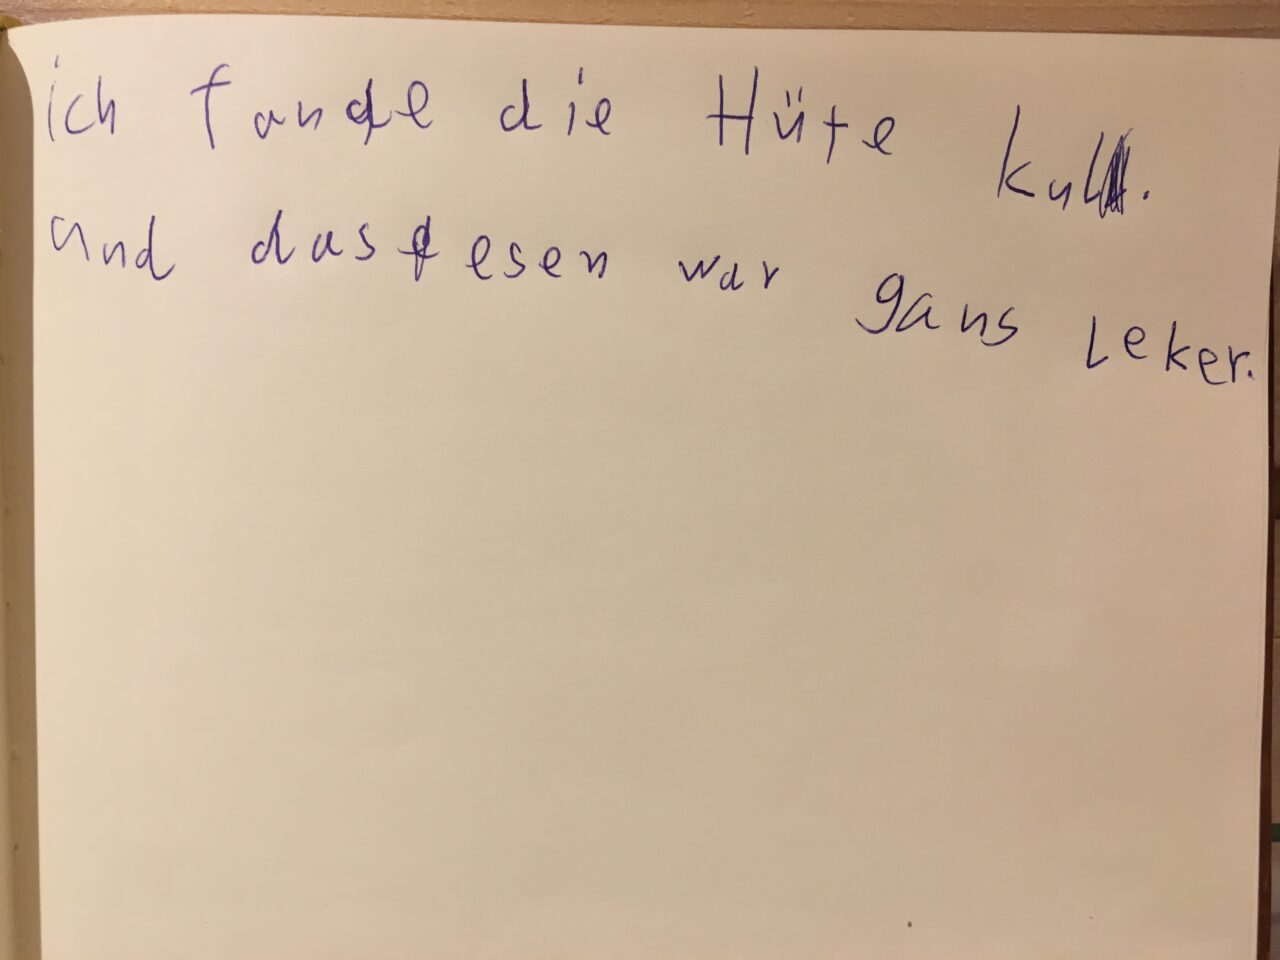 ich fande die Hüte kul.
und das esen war gans leker.